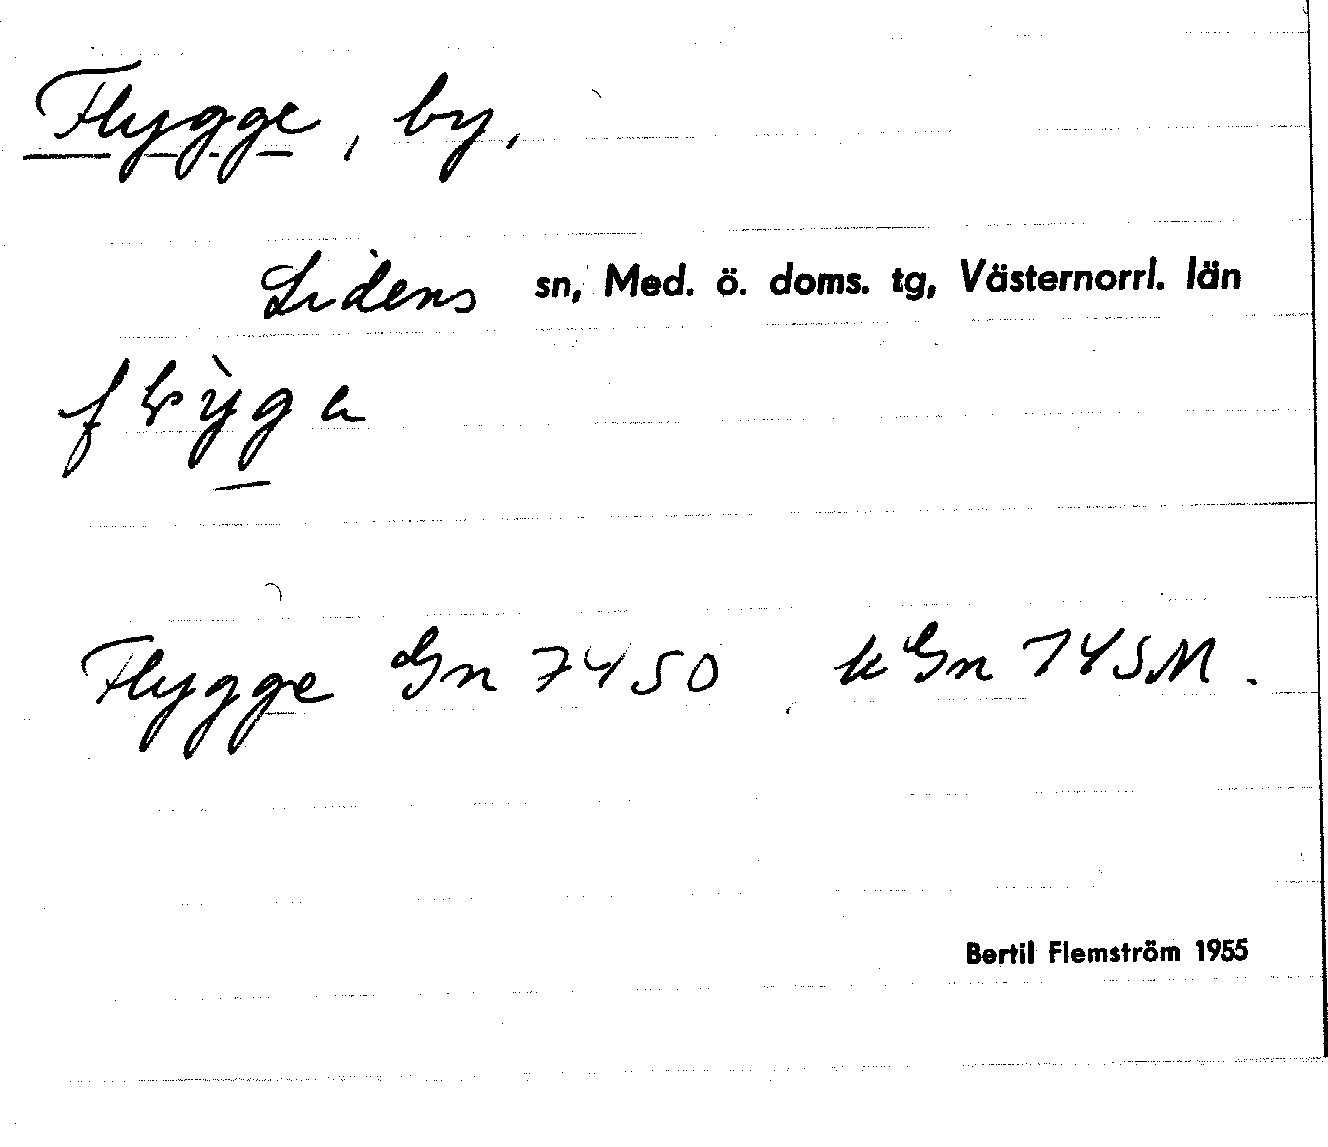 Flygge, by,
Lidens sn, Med. ö. doms. tg, Västernorrl. län
Flygge Gn 7450 k Gn 745M.
Bertil Flemström 1955